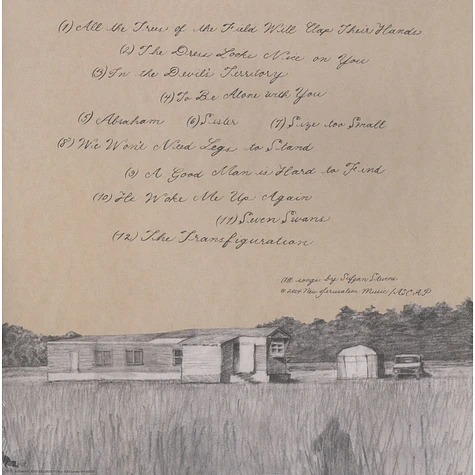 (1) All the Trees of the Field Will Clap Their Hands
(2) The Dress Looks Nice on You
(3) In the Devil's Territory
(4) To Be Alone with You
(5) Abraham (6) Sister (7) Size too Small
(8) We Won't Need Legs to Stand
(9) A Good Man is Hard to Find
(10) He Woke Me Up Again
(11) Seven Swans
(12) The Transfiguration
All songs by Sufjan Stevens
© 2004 New Jerusalem Music / ASCAP